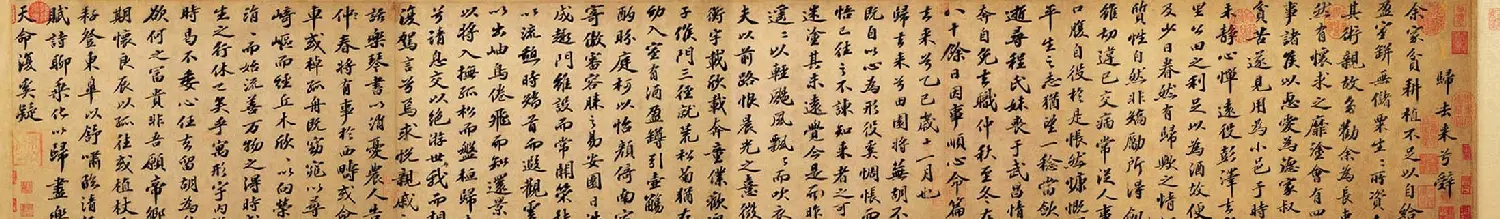 歸去來兮辭
余家貧耕植不足以自給
盈室缾無儲粟生〻所資
其術親故多勸余為長吏
然有懷求之靡塗會有四
事諸侯以惠愛為德家叔
貧苦遂見用為小邑于時
未靜心憚遠役彭澤去
里公田之利足以為酒故便
及少日眷然有歸與之情
質性自然非矯勵所得飢
雖切違已交病常從人事
口腹自役於是悵然慷慨
平生之志猶望一稔當歛
逝尋程氏妹喪于武昌情
奔自免去職仲秋至冬在
八十餘日因事順心命篇
去來兮乙巳歲十一月也
歸去來兮田園將蕪胡不
既自以心為形役奚惆悵而
悟已往之不諫知來者之可
迷塗其未遠覺今是而昨
遙〻以輕颺風飄〻而吹衣
夫以前路恨晨光之熹微
衡宇載欣載奔童僕歡
子候門三徑就荒松菊猶存
幼入室有酒盈罇引壺觴
酌眄庭柯以怡顏倚南窗
寄傲審容膝之易安園日
成趣門雖設而常關策
以流憩時矯首而遐觀雲
以出岫鳥倦飛而知還景
以將入撫孤松而盤桓歸
兮請息交以絕游世我而相
復駕言兮焉求悅親戚
話樂琴書以消憂農人告
仲春將有事於西疇或命
車或棹孤舟既窈窕以尋
崎嶇而經丘木欣〻以向榮
涓〻而始流善萬物之得時
生之行休已矣乎寓形宇內
時曷不委心任去留胡為
欲何之富貴非吾願帝鄉
期懷良辰以孤往或植杖
耔登東皋以舒嘯臨清
賦詩聊乘化以歸盡樂
天命復奚疑